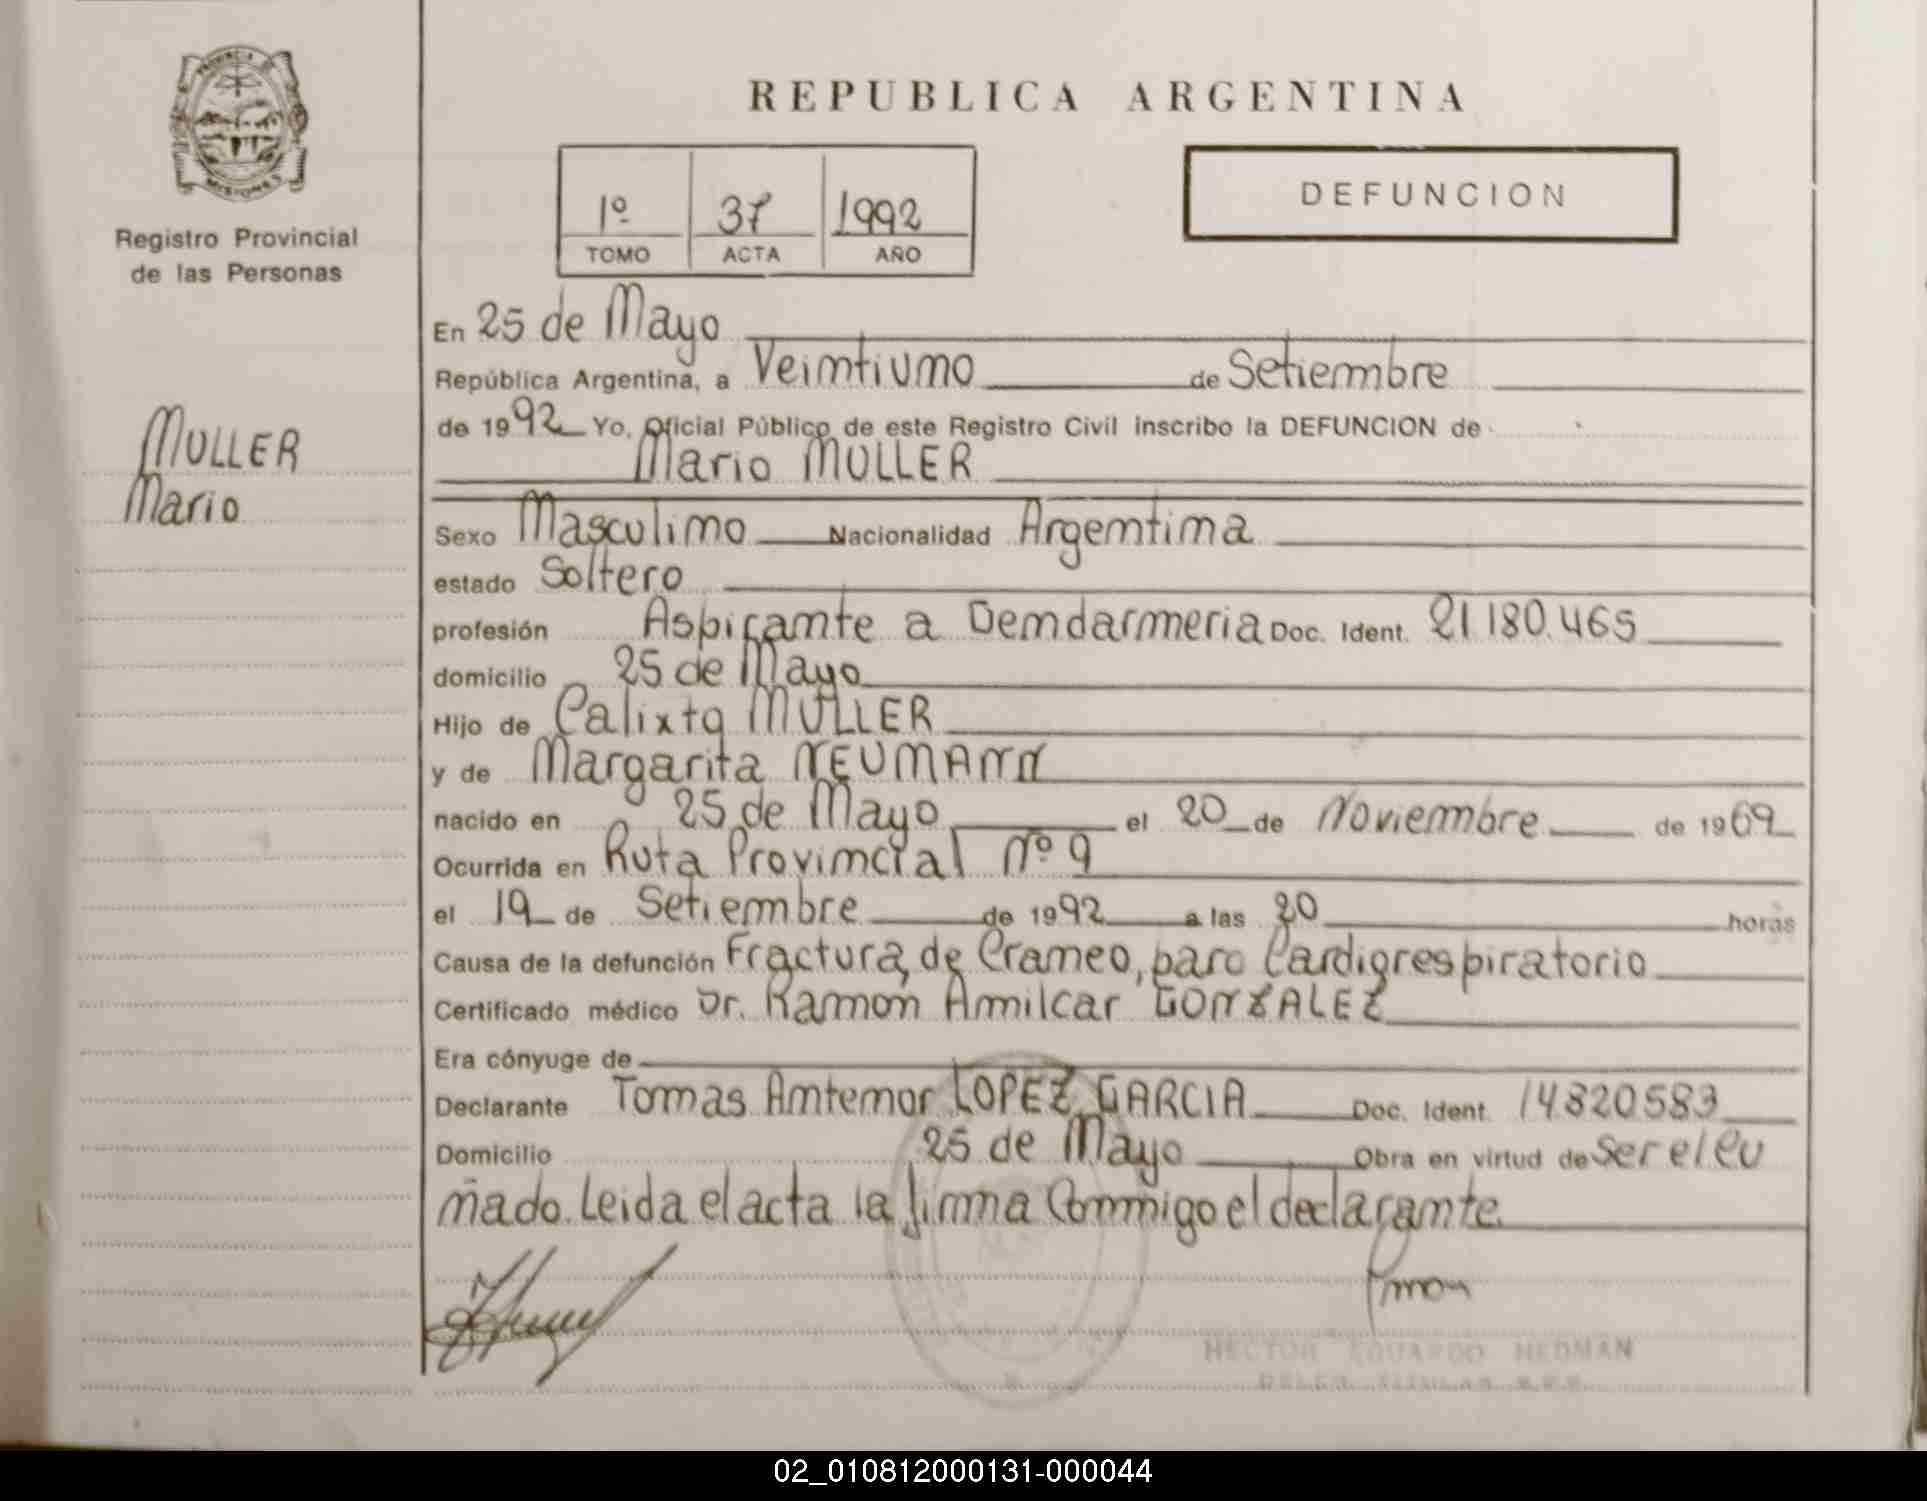 PROVINCIA DE
MISIONES
Registro Provincial
de las Personas
MULLER
Mario
REPUBLICA ARGENTINA
1º 37 1992
TOMO ACTA AÑO
DEFUNCION
En 25 de Mayo
República Argentina, a Veintiuno de Setiembre
de 1992 Yo, Oficial Público de este Registro Civil inscribo la DEFUNCION de
Mario MULLER
Sexo Masculino Nacionalidad Argentina
estado Soltero
profesión Aspirante a Gendarmeria Doc. Ident. 21.180.465
domicilio 25 de Mayo
Hijo de Calixto MULLER
y de Margarita NEUMANN
nacido en 25 de Mayo el 20 de Noviembre de 1969
Ocurrida en Ruta Provincial Nº 9
el 19 de Setiembre de 1992 a las 20 horas
Causa de la defunción Fractura de Craneo, paro Cardiorespiratorio
Certificado médico Dr. Ramon Amilcar GONZALEZ
Era cónyuge de
Declarante Tomas Antenor LOPEZ GARCIA Doc. Ident. 14820583
Domicilio 25 de Mayo Obra en virtud de Ser el eu
ñado. Leida el acta la firma Conmigo el declarante.
HECTOR EDUARDO HEDMAN
02_010812000131-000044